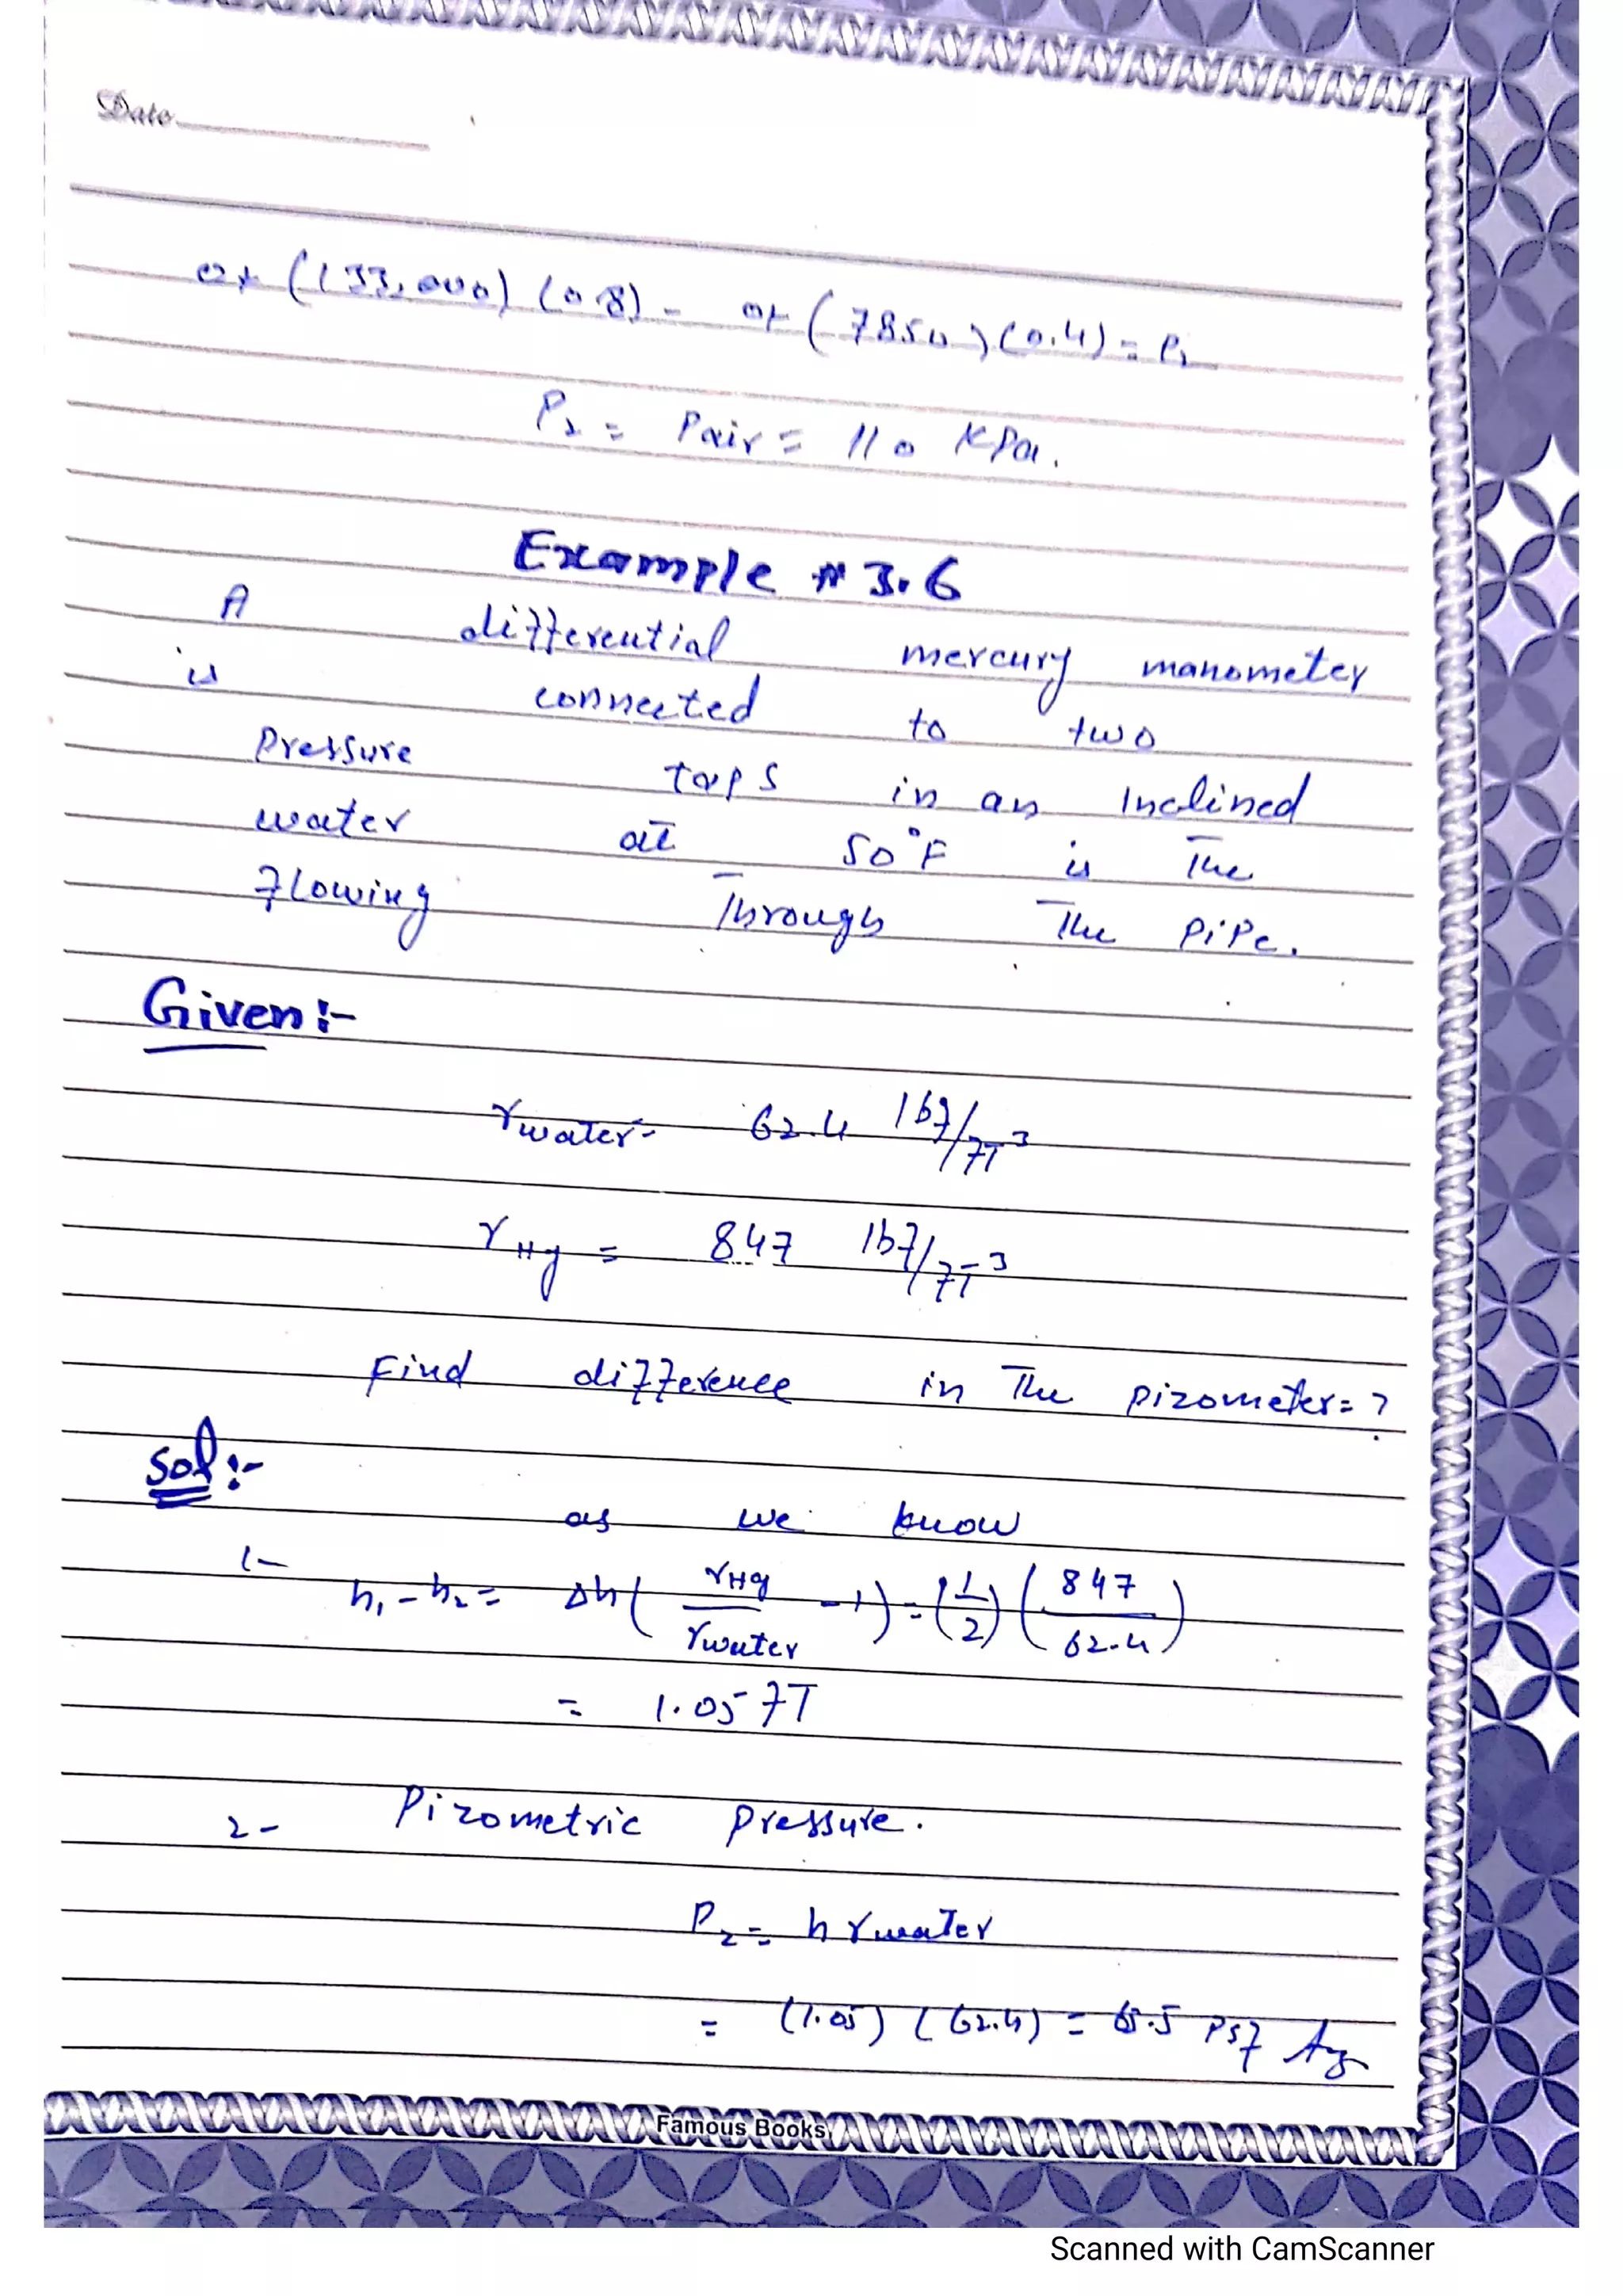 Date
0+ (133,000) (0.8) - 0+ (7850) (0.4) = P2
P2 = Pair = 110 KPa.
Example # 3.6
A differential mercury manometer
is connected to two
Pressure taps in an Inclined
water at 50°F is The
Flowing Through The PiPe.
Given:-
γwater = 62.4 lbf/fT³
γHg = 847 lbf/fT³
Find difference in The pizometer = ?
Sol:-
as we know
1- h₁ - h₂ = Δh( γHg/γwater - 1) = (1/2) ( 847/62.4 )
= 1.05 fT
2- Pizometric Pressure.
Pz = h γwaTer
= (1.05) (62.4) = 65.5 Psf
Famous Books
Scanned with CamScanner